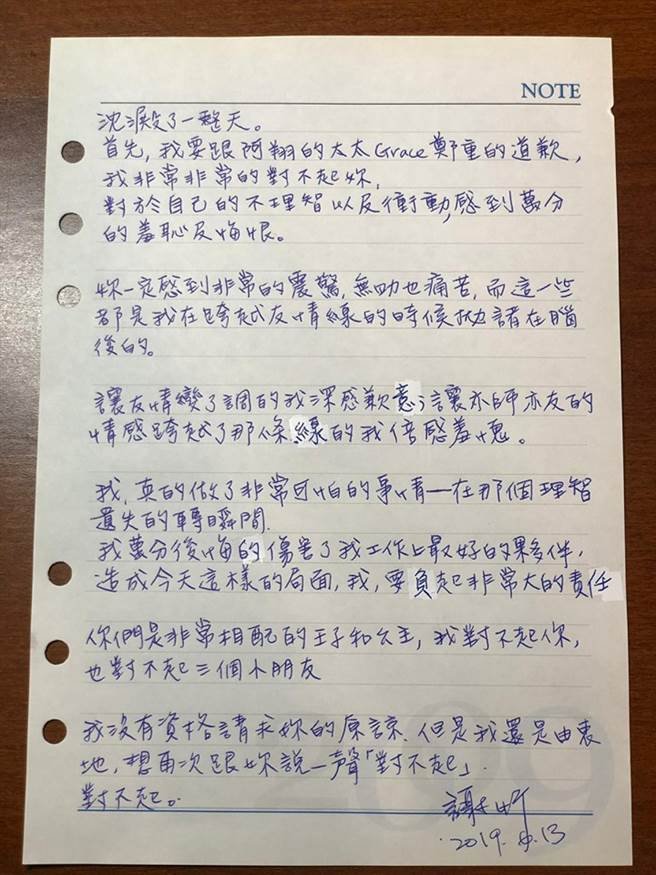 NOTE
沈澱了一整天。
首先,我要跟阿翔的太太Grace鄭重的道歉,
我非常非常的對不起妳,
對於自己的不理智以及衝動,感到萬分
的羞恥及悔恨。
妳一定感到非常的震驚,無助也痛苦,而這一些
都是我在跨越友情線的時候拋諸在腦
後的。
讓友情變了調的我深感歉意;讓亦師亦友的
情感跨越了那條線的我倍感羞愧。
我,真的做了非常可怕的事情—在那個理智
遺失的轉瞬間.
我萬分後悔的傷害了我工作上最好的夥伴,
造成今天這樣的局面,我,要負起非常大的責任
你們是非常相配的王子和公主,我對不起你,
也對不起三個小朋友
我沒有資格請求妳的原諒.但是我還是由衷
地,想再次跟妳說一聲「對不起」.
對不起。
謝忻
2019. 8.13